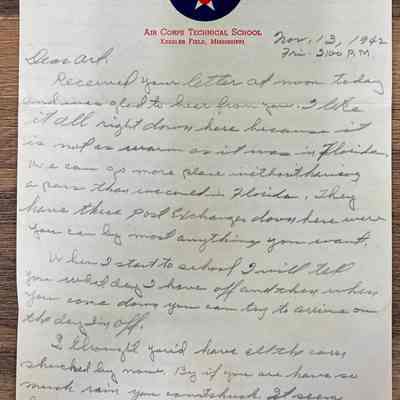 AIR CORPS TECHNICAL SCHOOL
KEESLER FIELD, MISSISSIPPI
Nov. 13, 1942
Fri. 2:00 P.M.
Dear Art,
Received your letter at noon today
and was glad to hear from you. I like
it all right down here because it
is not as warm as it was in Florida.
We can go more place without having
a pass than we coned in Florida. They
have these Post Exchanges down here were
you can by most anything you want.
When I start to school I will tell
you what day I have off and then when
you come down you can try to arrive on
the day I'm off.
I thought you'd have all the corn
shucked by now. By if you are have so
much rain you can't shuck. It seems